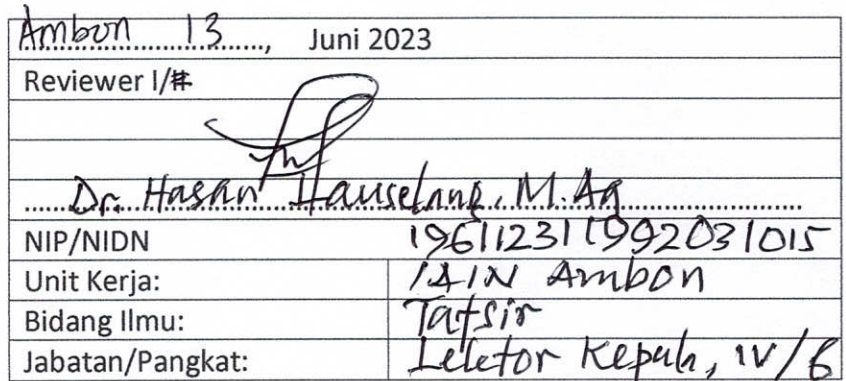 Ambon 13......, Juni 2023
Reviewer I/#
Dr. Hasan Lauselang, M.Ag
NIP/NIDN 196112311992031015
Unit Kerja: IAIN Ambon
Bidang Ilmu: Tafsir
Jabatan/Pangkat: Lektor Kepala, IV/